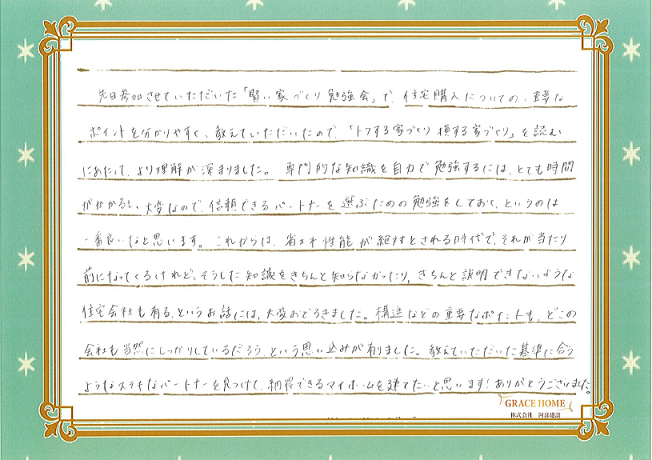 先日参加させていただいた「賢い家づくり勉強会」で、住宅購入についての、重要な
ポイントを分かりやすく、教えていただいたので「トクする家づくり損する家づくり」を読む
にあたって、より理解が深まりました。専門的な知識を自力で勉強するには、とても時間
がかかるし、大変なので、信頼できるパートナーを選ぶための勉強をしておく、というのは
一番良いなと思います。これからは、省エネ性能が絶対とされる時代で、それが当たり
前になってくるけれど、そうした知識をきちんと知らなかったり、きちんと説明できないような
住宅会社も有る、というお話には、大変おどろきました。構造などの重要なポイントも、どこの
会社も当然にしっかりしているだろう、という思い込みが有りました。教えていただいた基準に合う
ようなステキなパートナーを見つけて、納得できるマイホームを建てたいと思います！ありがとうございました。
GRACE HOME
株式会社 阿部建設